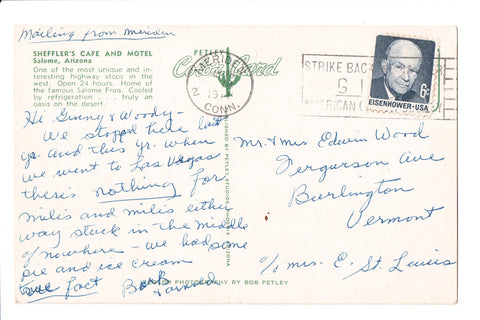 Mailing from Meriden
SHEFFLER'S CAFE AND MOTEL
Salome, Arizona
One of the most unique and in-
teresting highway stops in the
west. Open 24 hours. Home of
the famous Salome Frog. Cooled
by refrigeration . . . truly an
oasis on the desert.
PETLEY
Color Card
MERIDEN
2
CONN.
STRIKE BAC
G I
AMERICAN C
6¢
EISENHOWER·USA
Hi Ginny & Woody-
We stopped here last
yr. and this yr. when
we went to Las Vegas
there's nothing for
milis and milis either
way stuck in the middle
of nowhere - we had some
pie and ice cream
true fact
Barb
+ Arnold
PUBLISHED BY PETLEY STUDIOS, PHOENIX, ARIZONA
COLOR PHOTOGRAPHY BY BOB PETLEY
Mr. + Mrs Edwin Wood
Fergurson Ave
Burlington
Vermont
c/o Mrs. E. St. Louis